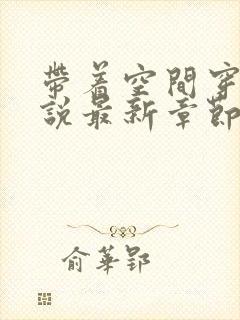 帶着空間穿
說最新章節
俞華郢